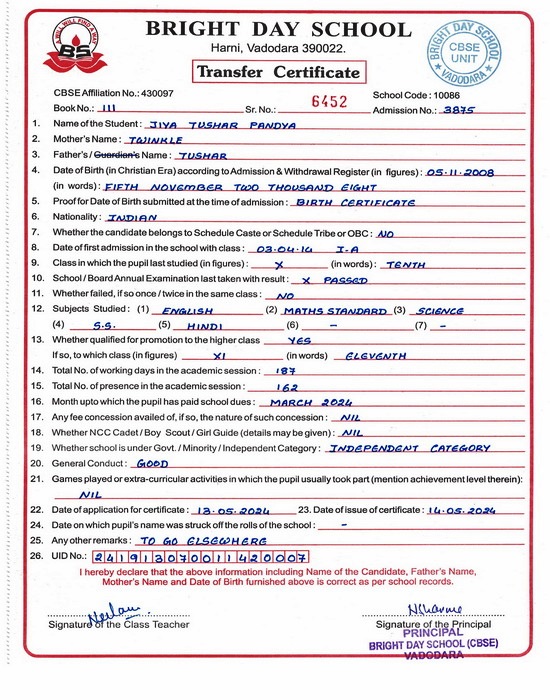 A WILL WILL FIND A WAY
BS
BRIGHT DAY SCHOOL
Harni, Vadodara 390022.
Transfer Certificate
BRIGHT DAY SCHOOL
CBSE
UNIT
VADODARA
CBSE Affiliation No.: 430097 School Code : 10086
Book No.: III Sr. No.: 6452 Admission No.: 3875
1. Name of the Student : JIYA TUSHAR PANDYA
2. Mother's Name : TWINKLE
3. Father's / Guardian's Name : TUSHAR
4. Date of Birth (in Christian Era) according to Admission & Withdrawal Register (in figures) : 05.11.2008
(in words) : FIFTH NOVEMBER TWO THOUSAND EIGHT
5. Proof for Date of Birth submitted at the time of admission : BIRTH CERTIFICATE
6. Nationality : INDIAN
7. Whether the candidate belongs to Schedule Caste or Schedule Tribe or OBC : NO
8. Date of first admission in the school with class : 03.04.14 I-A
9. Class in which the pupil last studied (in figures) : X (in words) : TENTH
10. School / Board Annual Examination last taken with result : X PASSED
11. Whether failed, if so once / twice in the same class : NO
12. Subjects Studied : (1) ENGLISH (2) MATHS STANDARD (3) SCIENCE
(4) S.S. (5) HINDI (6) – (7) –
13. Whether qualified for promotion to the higher class YES
If so, to which class (in figures) XI (in words) ELEVENTH
14. Total No. of working days in the academic session : 187
15. Total No. of presence in the academic session : 162
16. Month upto which the pupil has paid school dues : MARCH 2024
17. Any fee concession availed of, if so, the nature of such concession : NIL
18. Whether NCC Cadet / Boy Scout / Girl Guide (details may be given) : NIL
19. Whether school is under Govt. / Minority / Independent Category : INDEPENDENT CATEGORY
20. General Conduct : GOOD
21. Games played or extra-curricular activities in which the pupil usually took part (mention achievement level therein):
NIL
22. Date of application for certificate : 13.05.2024 23. Date of issue of certificate : 14.05.2024
24. Date on which pupil's name was struck off the rolls of the school : –
25. Any other remarks : TO GO ELSEWHERE
26. UID No.: 241913070011420007
I hereby declare that the above information including Name of the Candidate, Father's Name,
Mother's Name and Date of Birth furnished above is correct as per school records.
Signature of the Class Teacher Signature of the Principal
PRINCIPAL
BRIGHT DAY SCHOOL (CBSE)
VADODARA